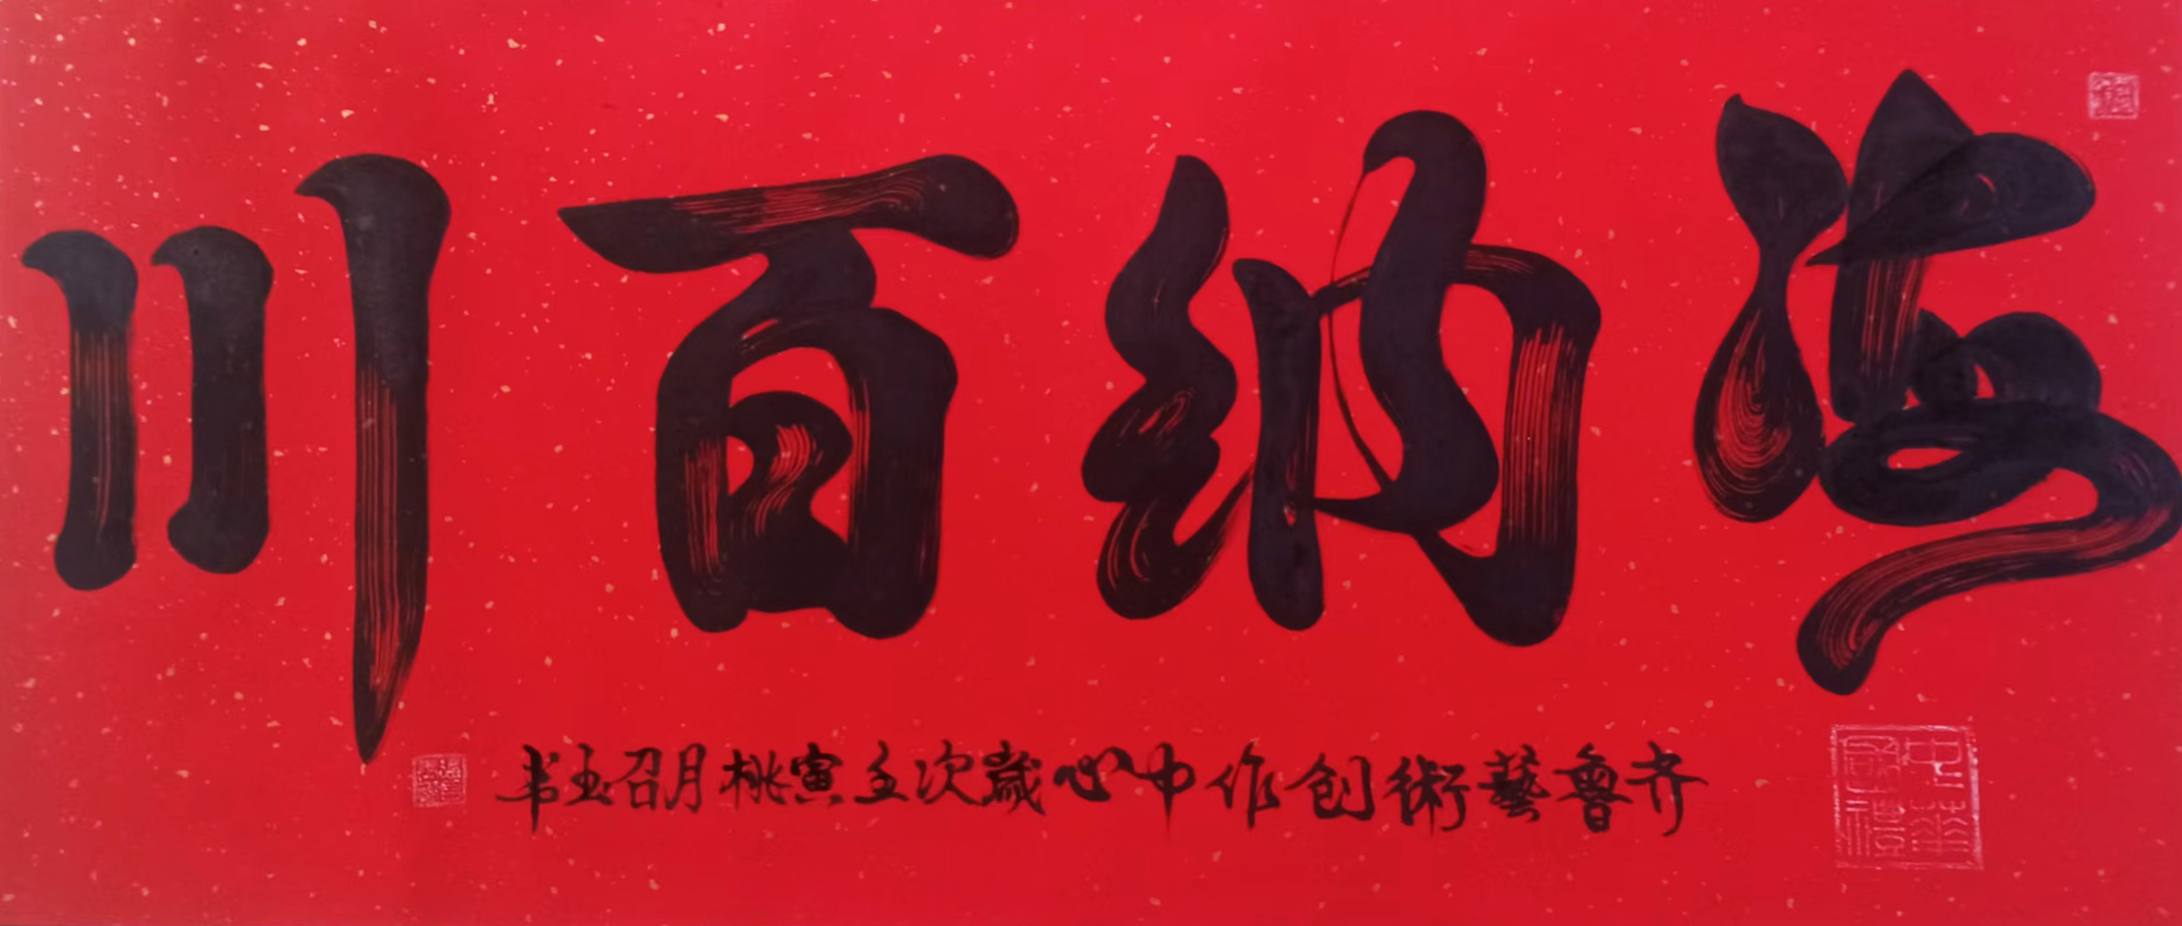 海纳百川
齐鲁藝術创作中心歲次壬寅桃月召玉书